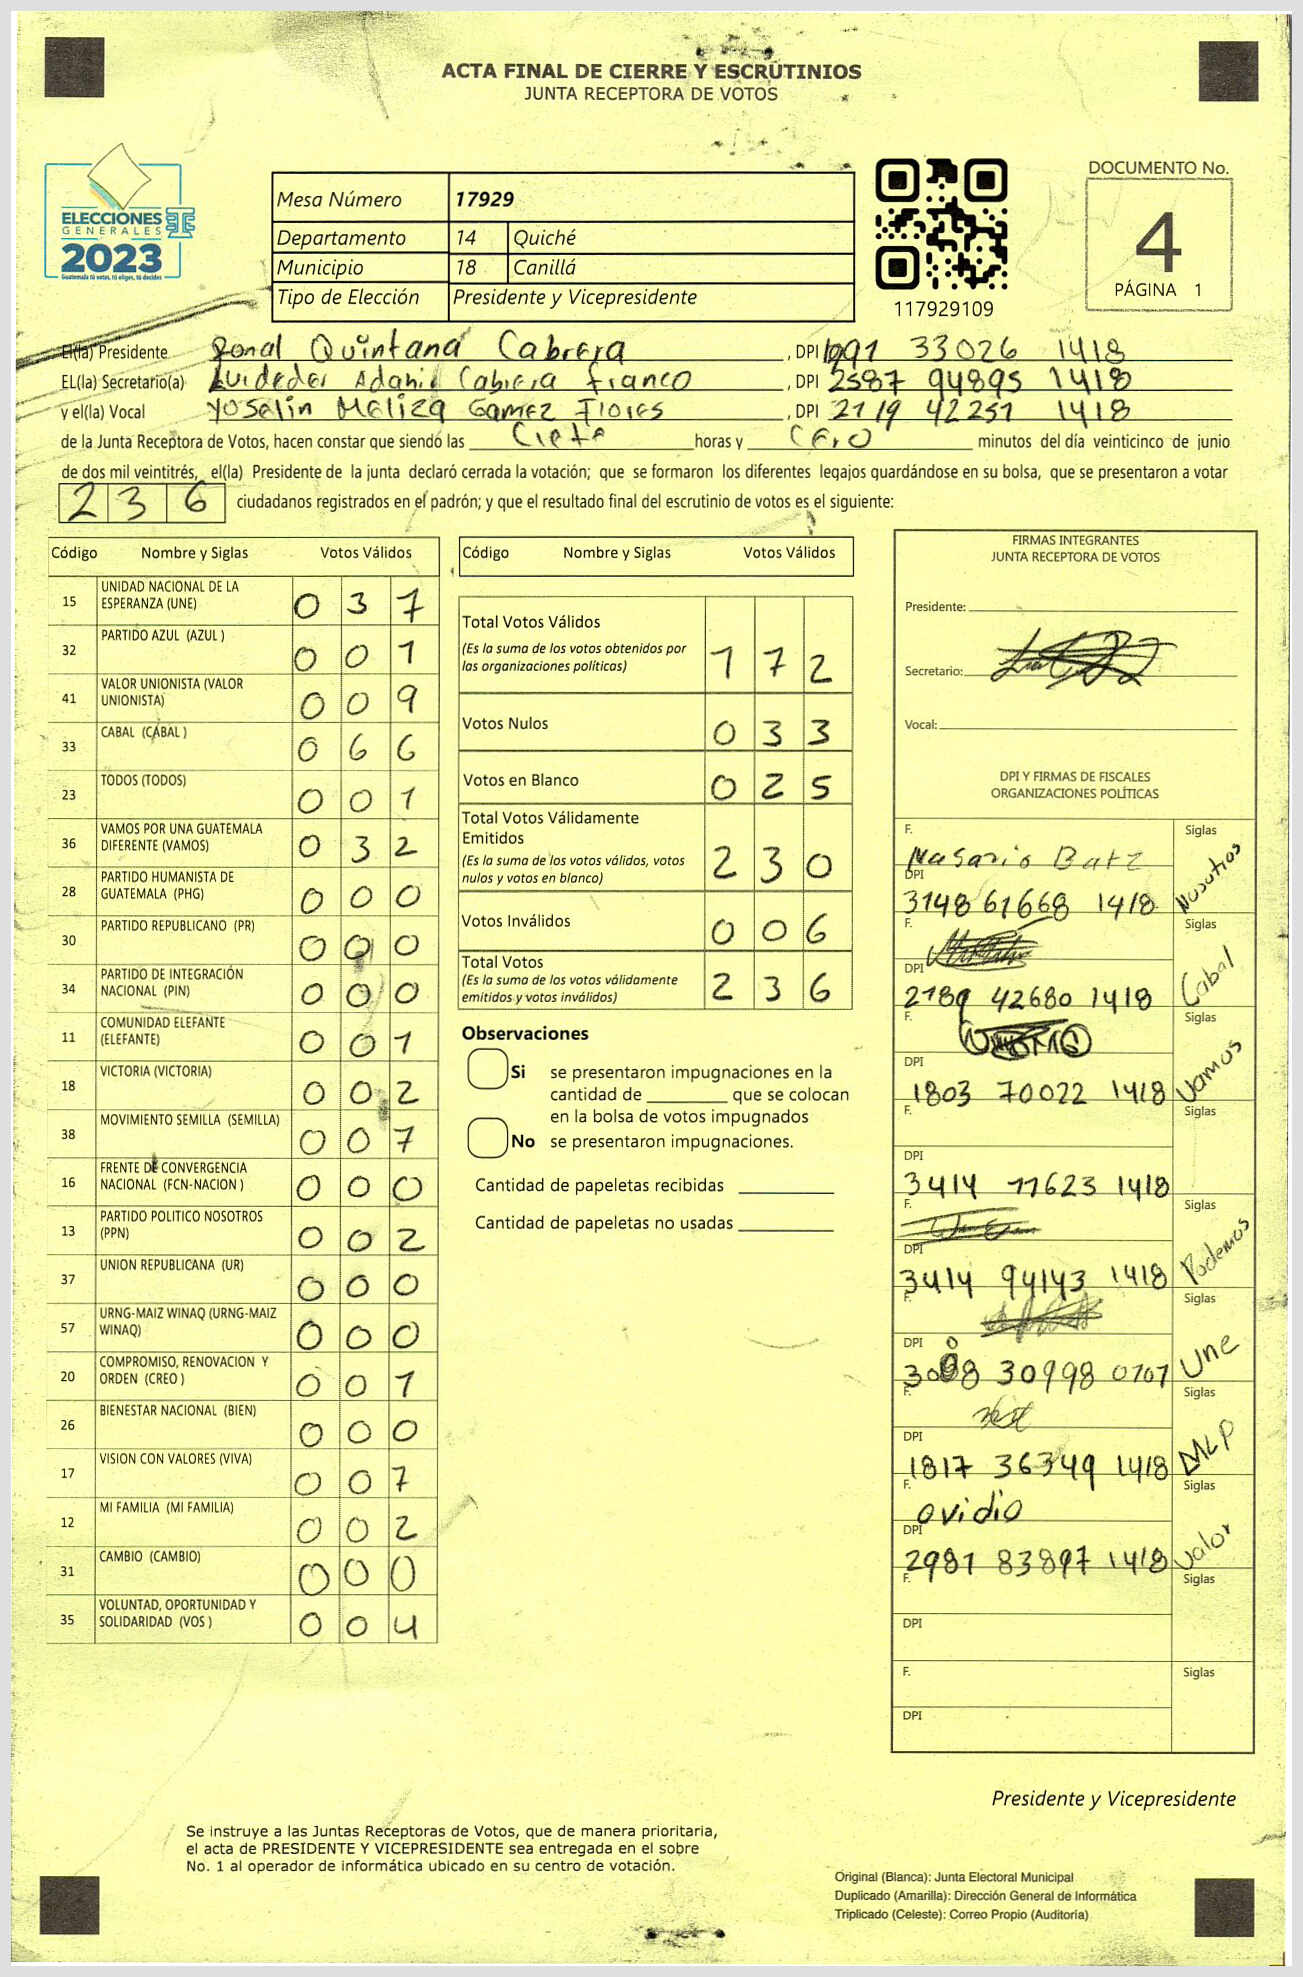 ACTA FINAL DE CIERRE Y ESCRUTINIOS
JUNTA RECEPTORA DE VOTOS
ELECCIONES
GENERALES
2023
Guatemala tú votas, tú eliges, tú decides
Mesa Número 17929
Departamento 14 Quiché
Municipio 18 Canillá
Tipo de Elección Presidente y Vicepresidente
117929109
DOCUMENTO No.
4
PÁGINA 1
El(la) Presidente Ronal Quintana Cabrera , DPI 1991 33026 1418
EL(la) Secretario(a) Adania Cabrera franco , DPI 2587 94895 1418
y el(la) Vocal Yoselin Meliza Gamez Flores , DPI 2119 42251 1418
de la Junta Receptora de Votos, hacen constar que siendo las Ciete horas y Cero minutos del día veinticinco de junio
de dos mil veintitrés, el(la) Presidente de la junta declaró cerrada la votación; que se formaron los diferentes legajos guardándose en su bolsa, que se presentaron a votar
236 ciudadanos registrados en el padrón; y que el resultado final del escrutinio de votos es el siguiente:
Código Nombre y Siglas Votos Válidos
15 UNIDAD NACIONAL DE LA ESPERANZA (UNE) 0 3 7
32 PARTIDO AZUL (AZUL ) 0 0 1
41 VALOR UNIONISTA (VALOR UNIONISTA) 0 0 9
33 CABAL (CABAL ) 0 6 6
23 TODOS (TODOS) 0 0 1
36 VAMOS POR UNA GUATEMALA DIFERENTE (VAMOS) 0 3 2
28 PARTIDO HUMANISTA DE GUATEMALA (PHG) 0 0 0
30 PARTIDO REPUBLICANO (PR) 0 0 0
34 PARTIDO DE INTEGRACIÓN NACIONAL (PIN) 0 0 0
11 COMUNIDAD ELEFANTE (ELEFANTE) 0 0 1
18 VICTORIA (VICTORIA) 0 0 2
38 MOVIMIENTO SEMILLA (SEMILLA) 0 0 7
16 FRENTE DE CONVERGENCIA NACIONAL (FCN-NACION ) 0 0 0
13 PARTIDO POLITICO NOSOTROS (PPN) 0 0 2
37 UNION REPUBLICANA (UR) 0 0 0
57 URNG-MAIZ WINAQ (URNG-MAIZ WINAQ) 0 0 0
20 COMPROMISO, RENOVACION Y ORDEN (CREO ) 0 0 1
26 BIENESTAR NACIONAL (BIEN) 0 0 0
17 VISION CON VALORES (VIVA) 0 0 7
12 MI FAMILIA (MI FAMILIA) 0 0 2
31 CAMBIO (CAMBIO) 0 0 0
35 VOLUNTAD, OPORTUNIDAD Y SOLIDARIDAD (VOS ) 0 0 4
Código Nombre y Siglas Votos Válidos
Total Votos Válidos
(Es la suma de los votos obtenidos por
las organizaciones políticas) 1 7 2
Votos Nulos 0 3 3
Votos en Blanco 0 2 5
Total Votos Válidamente
Emitidos
(Es la suma de los votos válidos, votos
nulos y votos en blanco) 2 3 0
Votos Inválidos 0 0 6
Total Votos
(Es la suma de los votos válidamente
emitidos y votos inválidos) 2 3 6
Observaciones
Si se presentaron impugnaciones en la
cantidad de ________ que se colocan
en la bolsa de votos impugnados
No se presentaron impugnaciones.
Cantidad de papeletas recibidas
Cantidad de papeletas no usadas
FIRMAS INTEGRANTES
JUNTA RECEPTORA DE VOTOS
Presidente:
Secretario:
Vocal:
DPI Y FIRMAS DE FISCALES
ORGANIZACIONES POLÍTICAS
F. Nasario Batz Siglas
DPI 3148 61668 1418 Nosotros
F. Siglas
DPI 2189 42680 1418 Cabal
F. Siglas
DPI 1803 70022 1418 Vamos
F. Siglas
DPI 3414 11623 1418
F. Siglas
DPI 3414 94143 1418 Podemos
F. Siglas
DPI 3008 30998 0707 Une
F. Siglas
DPI 1817 36349 1418 MLP
F. ovidio Siglas
DPI 2981 83897 1418 Valor
F. Siglas
DPI
F. Siglas
DPI
Presidente y Vicepresidente
Se instruye a las Juntas Receptoras de Votos, que de manera prioritaria,
el acta de PRESIDENTE Y VICEPRESIDENTE sea entregada en el sobre
No. 1 al operador de informática ubicado en su centro de votación.
Original (Blanca): Junta Electoral Municipal
Duplicado (Amarilla): Dirección General de Informática
Triplicado (Celeste): Correo Propio (Auditoría)